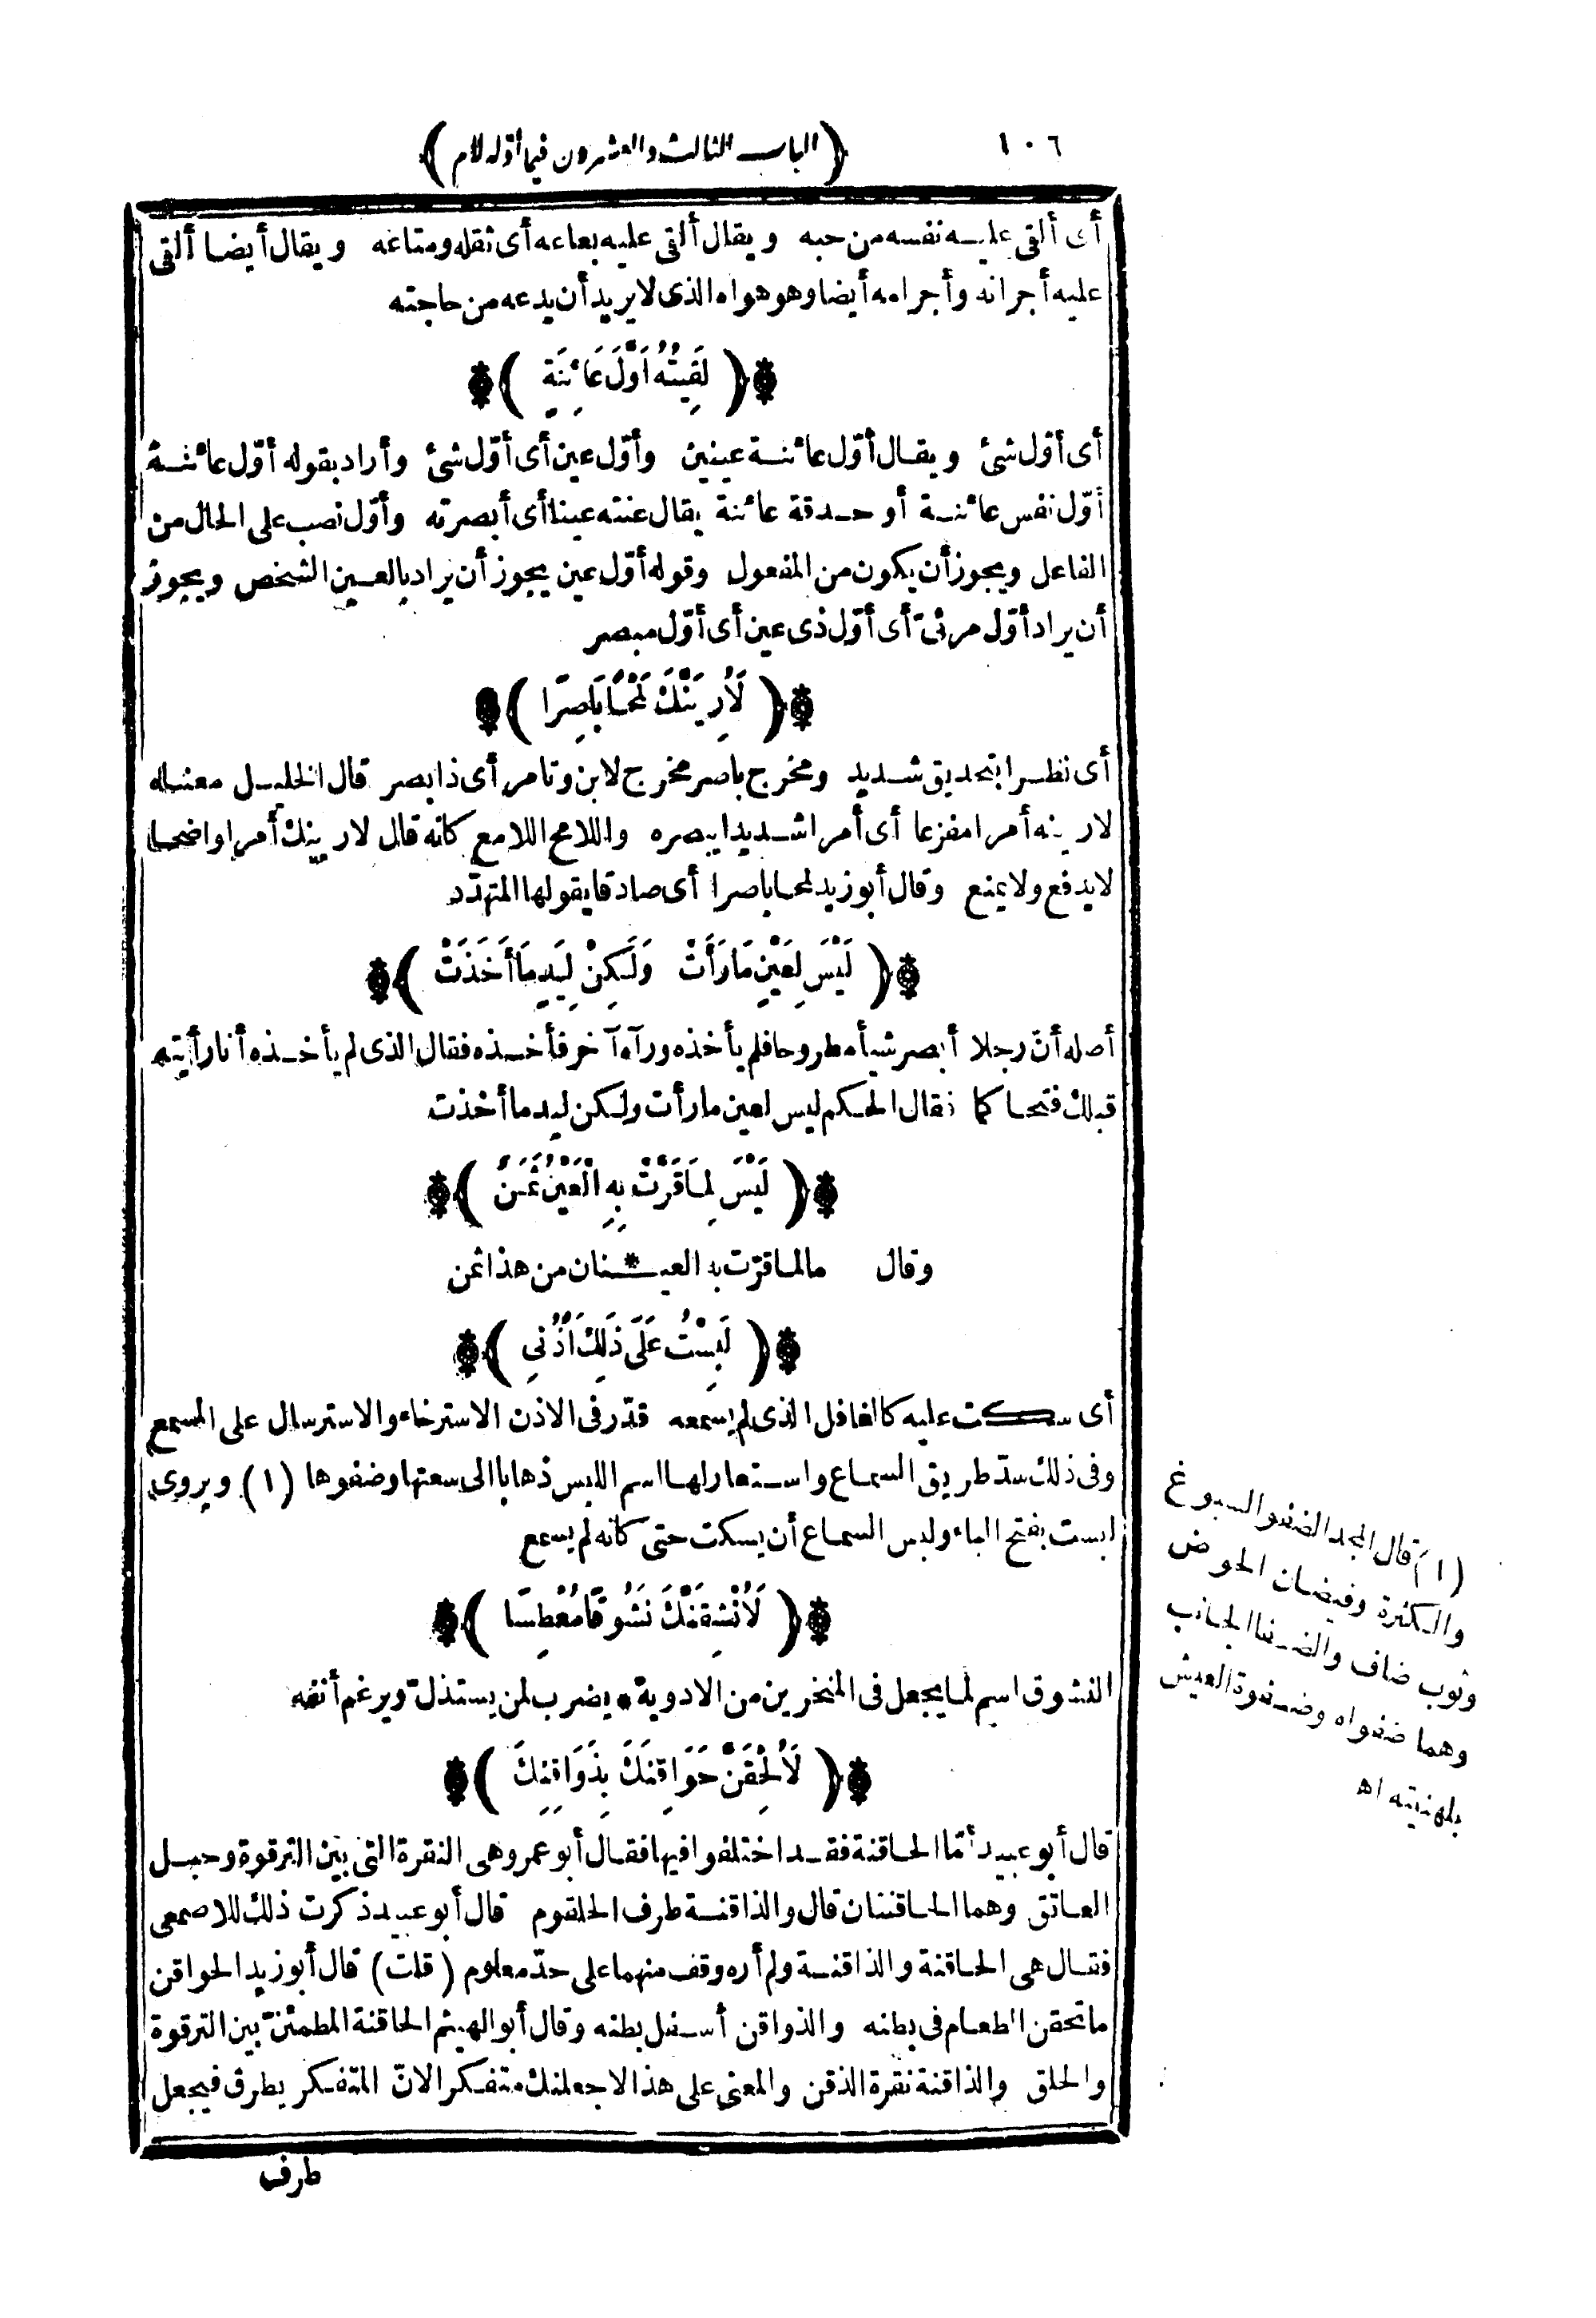 ١٠٦
﴿ الباب الثالث والعشرون فيما أوّله لام ﴾
أى ألقى عليه نفسه من حبه ويقال ألقى عليه بعاعه أى ثقله ومتاعه ويقال أيضا ألقى
عليه أجرانه وأجرامه أيضا وهو هواه الذى لا يريد أن يدعه من حاجته
﴿ لَقِيتُهُ أَوَّلَ عَائِنَةٍ ﴾
أى أوّل شئ ويقال أوّل عائنة عينين وأوّل عين أى أوّل شئ وأراد بقوله أوّل عائنة
أوّل نفس عائنة أو حدقة عائنة يقال عنته عينا أى أبصرته وأوّل نصب على الحال من
الفاعل ويجوز أن يكون من المفعول وقوله أوّل عين يجوز أن يراد بالعين الشخص ويجوز
أن يراد أوّل مرئىّ أى أوّل ذى عين أى أوّل مبصر
﴿ لَأُرِيَنَّكَ لَمْحًا بَاصِرًا ﴾
أى نظرا بتحديق شديد ومخرج باصر مخرج لابن وتامر أى ذا بصر قال الخليل معناه
لارينه أمرا مفزعا أى أمرا شديدا يبصره واللامح اللامع كأنه قال لارينك أمرا واضحا
لا يدفع ولا يمنع وقال أبو زيد لمحا باصرا أى صادقا يقولها المتهدّد
﴿ لَيْسَ لِعَيْنٍ مَا رَأَتْ وَلَكِنْ لِيَدٍ مَا أَخَذَتْ ﴾
أصله أنّ رجلا أبصر شيأ مطروحا فلم يأخذه ورآه آخر فأخذه فقال الذى لم يأخذه أنا رأيته
قبلك فتحاكما فقال الحكم ليس لعين ما رأت ولكن ليد ما أخذت
﴿ لَيْسَ لِمَا قَرَّتْ بِهِ الْعَيْنُ ثَمَنٌ ﴾
وقال ما لما قرّت به العيـ * ـنان من هذا ثمن
﴿ لَبِسْتُ عَلَى ذَلِكَ أُذُنِى ﴾
أى سكت عليه كالغافل الذى لم يسمعه قدّر فى الاذن الاسترخاء والاسترسال على المسمع
وفى ذلك سدّ طريق السماع واستعار لها اسم اللبس ذهابا الى سعتها وضفوها (١) ويروى
لبست بفتح الباء ولبس السماع أن يسكت حتى كأنه لم يسمع
﴿ لَأُنْشِقَنَّكَ نَشُوقًا مُعْطِسًا ﴾
النشوق اسم لما يجعل فى المنخرين من الادوية * يضرب لمن يستذلّ ويرغم أنفه
﴿ لَأُلْحِقَنَّ حَوَاقِنَكَ بِذَوَاقِنِكَ ﴾
قال أبو عبيد أمّا الحاقنة فقد اختلفوا فيها فقال أبو عمرو هى النقرة التى بين الترقوة وحبل
العاتق وهما الحاقنتان قال والذاقنة طرف الحلقوم قال أبو عبيد ذكرت ذلك للاصمعى
فقال هى الحاقنة والذاقنة ولم أره وقف منهما على حدّ معلوم (قلت) قال أبو زيد الحواقن
ما تحقن الطعام فى بطنه والذواقن أسفل بطنه وقال أبو الهيثم الحاقنة المطمئنّ بين الترقوة
والحلق والذاقنة نقرة الذقن والمعنى على هذا لاجعلنك متفكرا لانّ المتفكر يطرق فيجعل
طرف
(١) قال المجد الضفو السبوغ
والكثرة وفيضان الحوض
وثوب ضاف والضفا الجانب
وهما ضفواه وضفوة العيش
بلهنيته اه